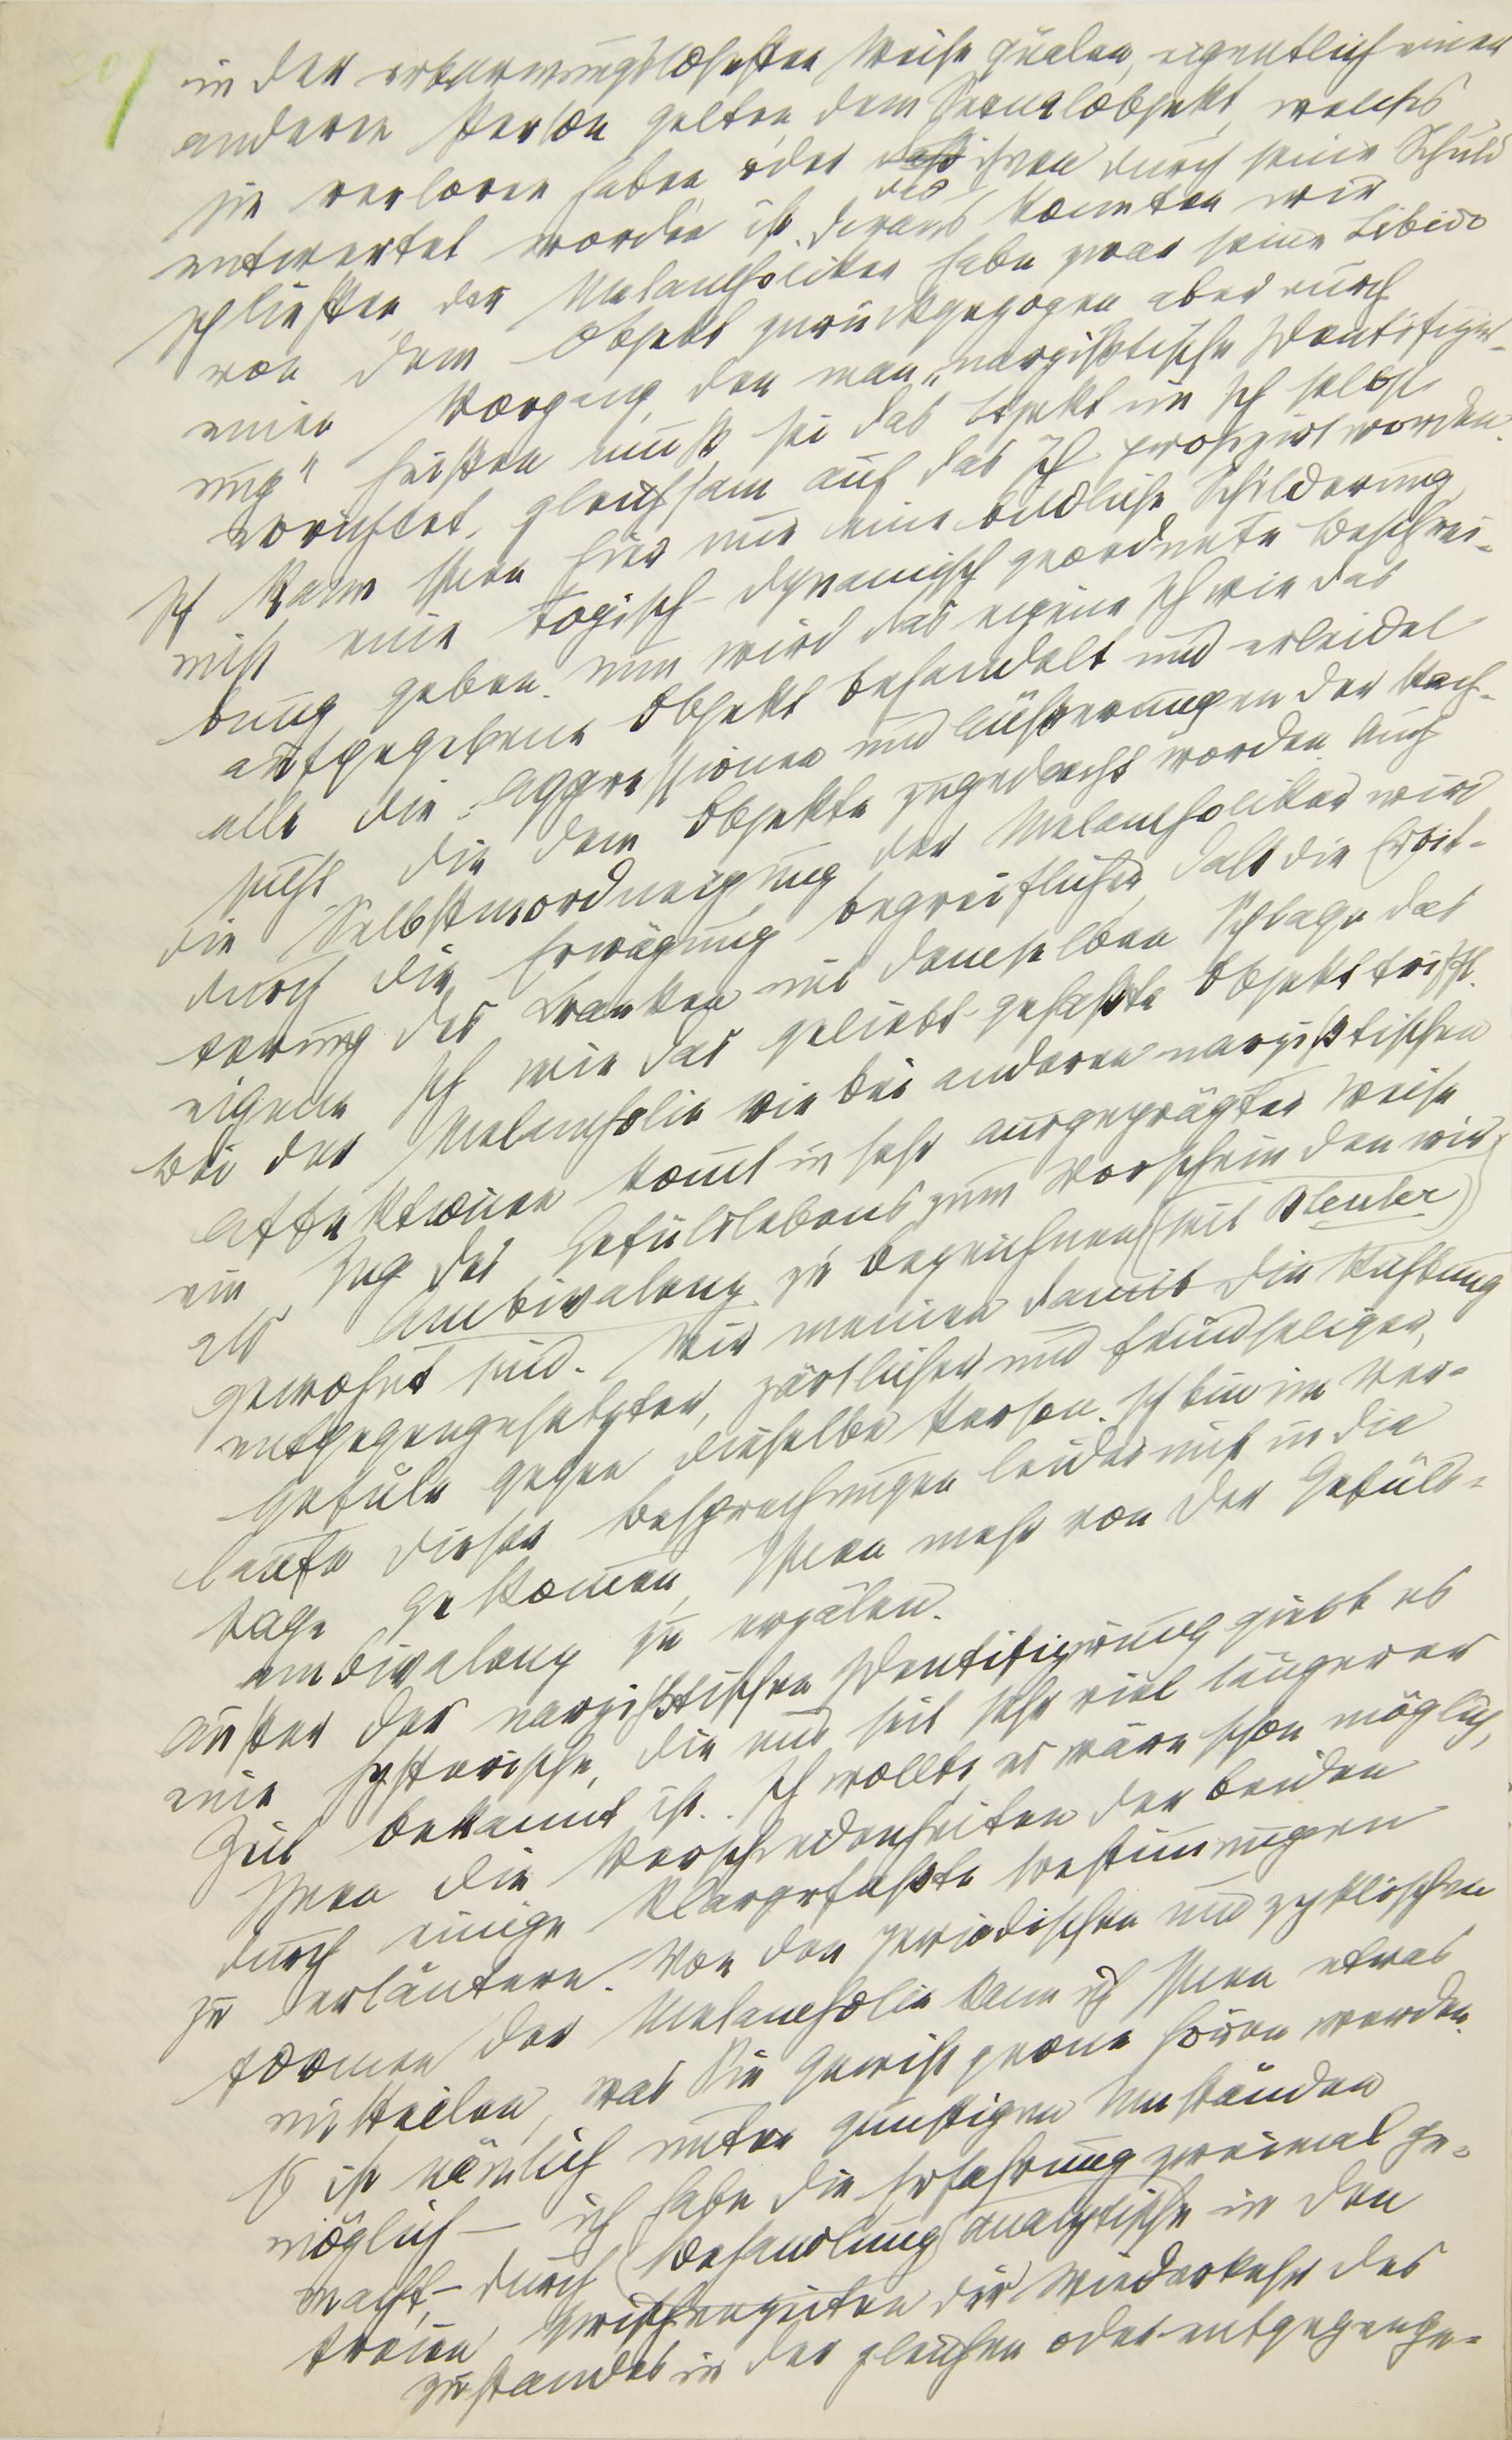 in der erbarmungslosesten Weise quälen, eigentlich einer
anderen Person gelten, dem Sexualobjekt, welches
sie verloren haben oder das ihnen durch seine Schuld
entwertet worden ist. Daraus konnten wir
schließen, der Melancholiker habe zwar seine Libido
von dem Objekt zurückgezogen, aber durch
einen Vorgang, den man „narzißtische Identifizier-
ung“ heißen muß, sei das Objekt im Ich selbst
errichtet, gleichsam auf das Ich projizirt worden.
Ich kann Ihnen hier nur eine bildliche Schilderung,
nicht eine topisch-dynamisch geordnete Beschrei-
bung geben. Nun wird das eigene Ich wie das
aufgegebene Objekt behandelt und erleidet
alle die Aggressionen und Äußerungen der Rach-
sucht, die dem Objekte zugedacht worden. Auch
die Selbstmordneigung der Melancholiker wird
durch die Erwägung begreiflicher, daß die Erbit-
terung des Kranken mit demselben Schlage das
eigene Ich wie das geliebt-gehaßte Objekt trifft.
Bei der Melancholie wie bei anderen narzißtischen
Affektionen kommt in sehr ausgeprägter Weise
ein Zug des Gefülslebens zum Vorschein, den wir
als Ambivalenz zu bezeichnen (seit Bleuler)
gewohnt sind. Wir meinen damit die Richtung
entgegengesetzter, zärtlicher und feindseliger,
Gefüle gegen dieselbe Person. Ich bin im Ver-
laufe dieser Besprechungen leider nicht in die
Lage gekommen, Ihnen mehr von der Gefüls-
ambivalenz zu erzälen.
Außer der narzißtischen Identifizirung giebt es
eine hysterische, die uns seit sehr viel längerer
Zeit bekannt ist. Ich wollte, es wäre schon möglich,
Ihnen die Verschiedenheiten der beiden
durch einige klargefaßte Bestimmungen
zu erläutern. Von den periodischen und zyklischen
Formen der Melancholie kann ich Ihnen etwas
mitteilen, was Sie gewiß gerne hören werden.
Es ist nämlich unter günstigen Umständen
möglich — ich habe die Erfahrung zweimal ge-
macht, — durch Behandlung analytische in den
freien Zwischenzeiten der Wiederkehr des
Zustandes in der gleichen oder entgegenge-